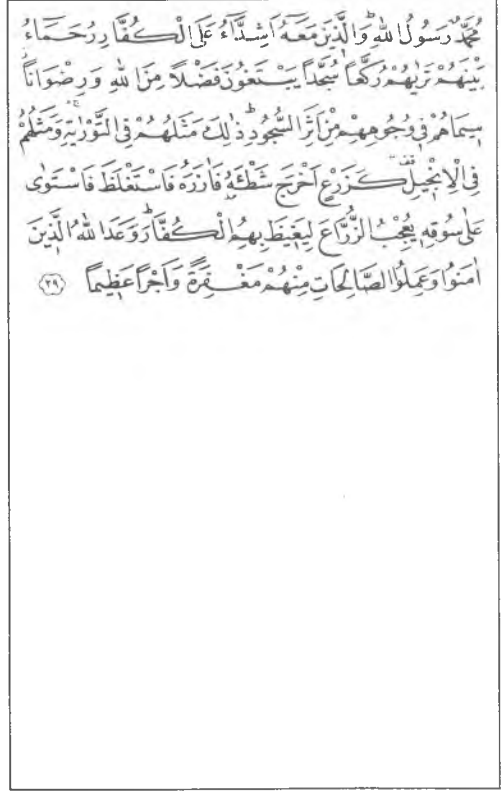 مُحَمَّدٌ رَسُولُ اللهِ ؕ وَالَّذِينَ مَعَهُٓ اَشِدَّٓاءُ عَلَى الْكُفَّارِ رُحَمَٓاءُ
بَيْنَهُمْ تَرٰيهُمْ رُكَّعاً سُجَّداً يَبْتَغُونَ فَضْلًا مِنَ اللهِ وَرِضْوَاناًؗ
سِيمَاهُمْ فِي وُجُوهِهِمْ مِنْ اَثَرِ السُّجُودِؕ ذٰلِكَ مَثَلُهُمْ فِي التَّوْرٰيةِۚۛ وَمَثَلُهُمْ
فِي الْاِنْجِيلِ۠ كَزَرْعٍ اَخْرَجَ شَطْـَٔهُ فَاٰزَرَهُ فَاسْتَغْلَظَ فَاسْتَوٰى
عَلٰى سُوقِهِ يُعْجِبُ الزُّرَّاعَ لِيَغِيظَ بِهِمُ الْكُفَّارَؕ وَعَدَ اللهُ الَّذِينَ
اٰمَنُوا وَعَمِلُوا الصَّالِحَاتِ مِنْهُمْ مَغْفِرَةً وَاَجْراً عَظِيماً ﴿٢٩﴾